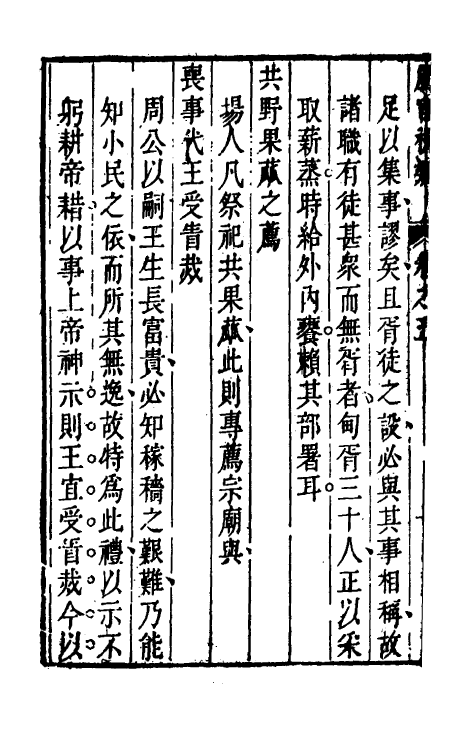 足以集事謬矣且胥徒之設必與其事相稱故
諸職有徒甚衆而無胥者甸胥三十人正以采
取薪蒸時給外内饔賴其部署耳
共野果蓏之薦
場人凡祭祀共果蓏此則專薦宗廟與
喪事代王受眚烖
周公以嗣王生長富貴必知稼穡之艱難乃能
知小民之依而所其無逸故特爲此禮以示不
躬耕帝耤以事上帝神示則王宜受眚烖今以